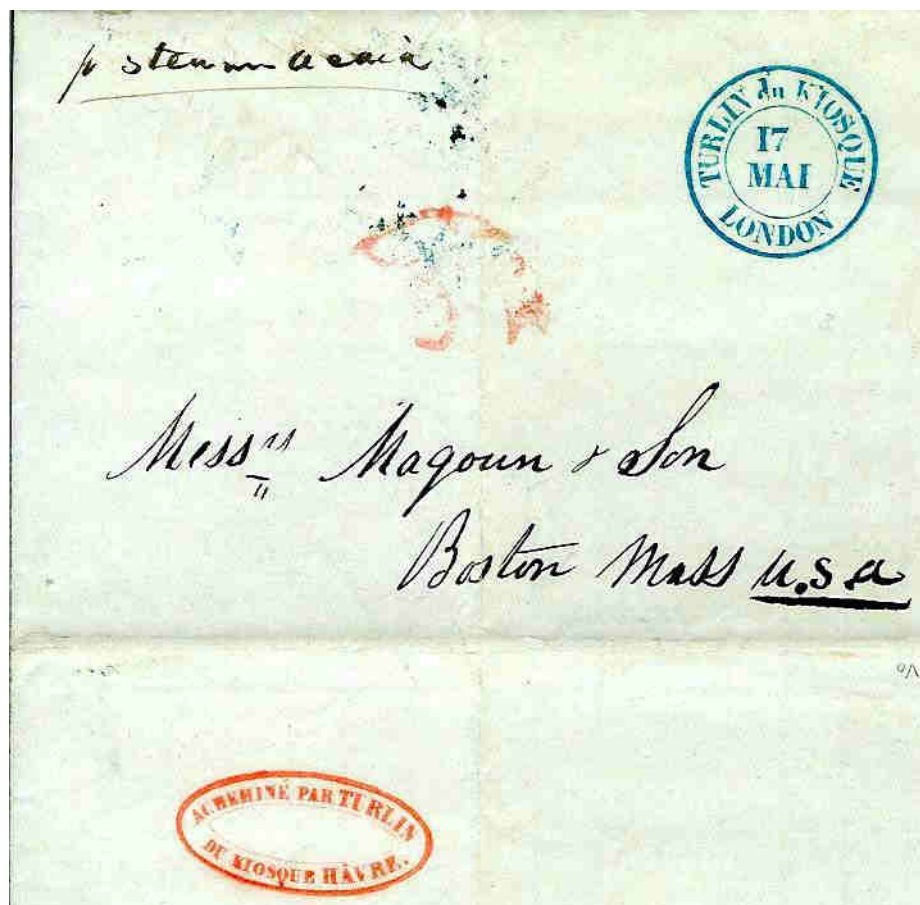 p steamer Acadia
TURLIN du KIOSQUE
17
MAI
LONDON
Mess<sup>rs</sup> Magoun & Son
Boston Mass U.S.A
ACHEMINÉ PAR TURLIN
DU KIOSQUE HÂVRE.